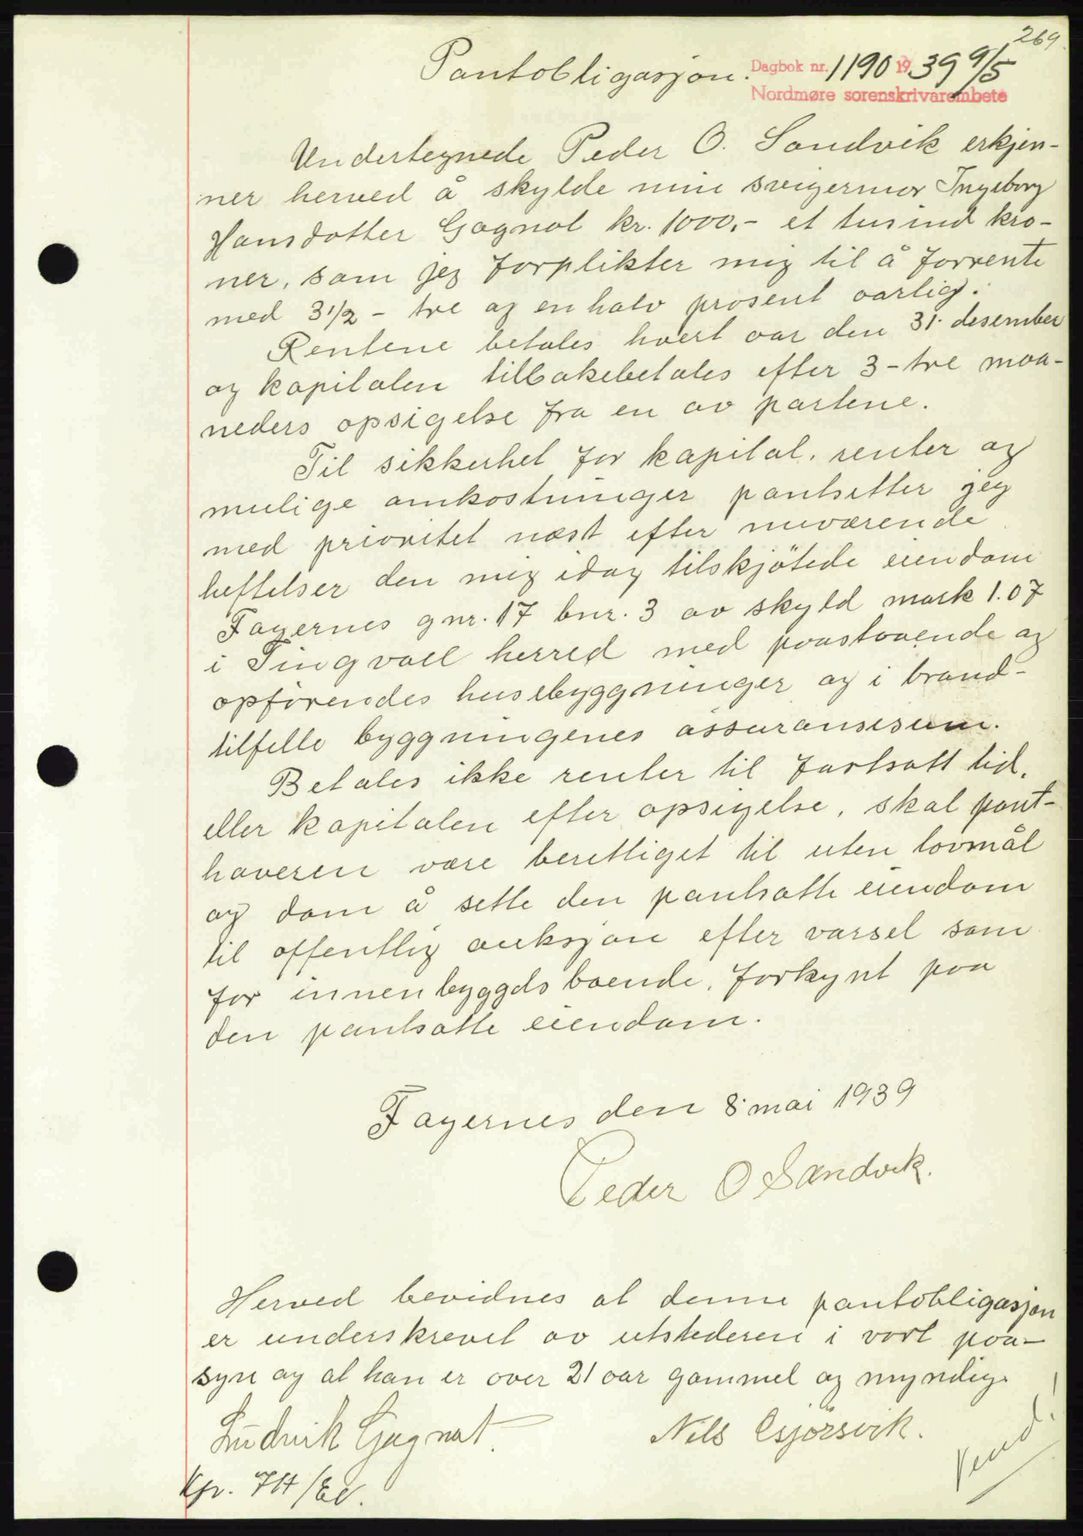 269.
Pantobligasjon.
Dagbok nr. 1190 1939 9/5
Nordmøre sorenskrivarembete
Undertegnede Peder O. Sandvik erkjen-
ner herved å skylde min svigermor Ingeborg
Hansdatter Gagnat kr. 1000,- et tusind kro-
ner, som jeg forplikter mig til å forrente
med 3½ - tre og en halv prosent aarlig.
Rentene betales hvert aar den 31. desember
og kapitalen tilbakebetales efter 3-tre maa-
neders opsigelse fra en av partene.
Til sikkerhet for kapital, renter og
mulige omkostninger pantsetter jeg
med prioritet næst efter nuværende
heftelser den mig idag tilskjøtede eiendom
Fagernes gnr. 17 bnr. 3 av skyld mark 1.07
i Tingvoll herred med paastaaende og
opførendes husebyggninger og i brand-
tilfelle byggningenes assuransesum.
Betales ikke renter til fastsatt tid,
eller kapitalen efter opsigelse, skal pant-
haveren være berettiget til uten lovmål
og dom å sette den pantsatte eiendom
til offentlig auksjon efter varsel som
for innenbyggdsboende, forkynt paa
den pantsatte eiendom.
Fagernes den 8. mai 1939
Peder O Sandvik.
Herved bevidnes at denne pantobligasjon
er underskrevet av utstederen i vort paa-
syn og at han er over 21 aar gammel og myndig.
Ludvik Gagnat. Nils
Vend!